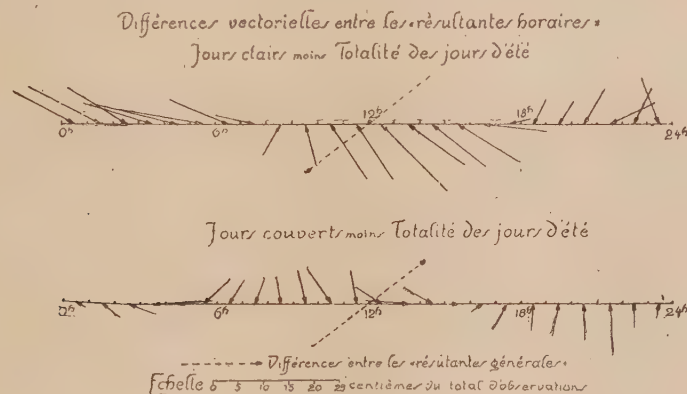 Différences vectorielles entre les «résultantes horaires»
Jours clairs moins Totalité des jours d'été
0ʰ 6ʰ 12ʰ 18ʰ 24ʰ
Jours couverts moins Totalité des jours d'été
0ʰ 6ʰ 12ʰ 18ʰ 24ʰ
Différences entre les «résutantes générales»
Echelle 0 5 10 15 20 25 centièmes du total d'observations